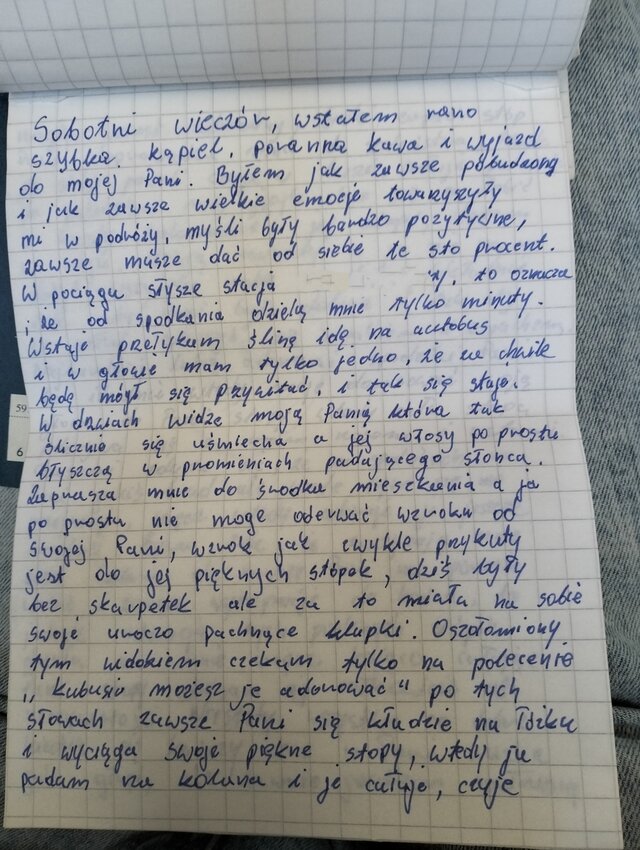 Sobotni wieczór, wstałem rano
szybka kąpiel, poranna kawa i wyjazd
do mojej Pani. Byłem jak zawsze pobudzony
i jak zawsze wielkie emocje towarzyszyły
mi w podróży, myśli były bardzo pozytywne,
zawsze musze dać od siebie te sto procent.
W pociągu słysze stacja y, to oznacza
i że od spodkania dzielą mnie tylko minuty.
Wstaje przełykam śling idę na autobus
i w głowie mam tylko jedno, że za chwile
będę mógł się przywitać, i tak się staje.
W dzwiach widze moją Panią która tak
ślicznie się uśmiecha a jej włosy po prostu
błyszczą w promieniach padającego słońca.
Zaprasza mnie do środka mieszkania a ja
po prostu nie moge oderwać wzroku od
swojej Pani, wzrok jak zwykle przykuty
jest do jej pięknych stópek, dziś były
bez skarpetek ale za to miała na sobie
swoje uroczo pachnące klapki. Oszołomiony
tym widokiem czekam tylko na polecenie
„kubusio możesz je adorować" po tych
słowach zawsze Pani się kładzie na łóżku
i wyciąga swoje piękne stopy, wtedy ja
padam na kolana i je całuje, czuje
59
6